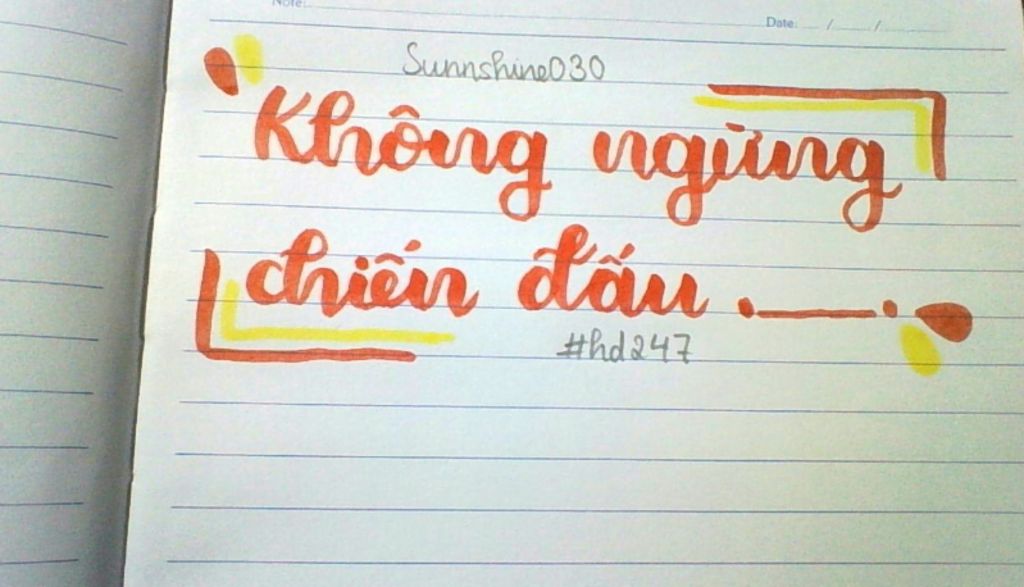 Note:
Date: / /
Sunnshine030
Không ngừng
chiến đấu
#hd247